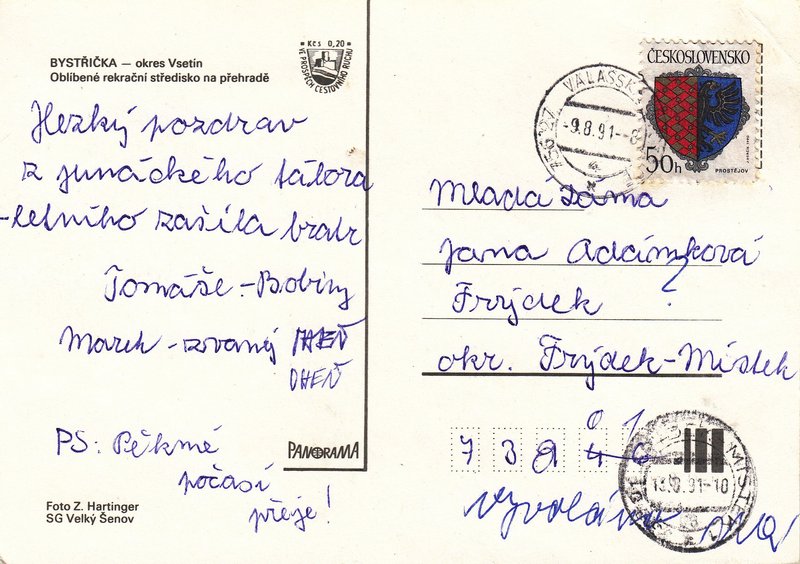 BYSTŘIČKA — okres Vsetín
Oblíbené rekrační středisko na přehradě
Kčs 0,20
VE PROSPĚCH CESTOVNÍHO RUCHU
Hezký pozdrav
z junáckého tábora
-letního zasílá bratr
Tomáše -
Marek - zvaný
OHEŇ
PS: Pěkné
počasí
přeje!
PANORAMA
Foto Z. Hartinger
SG Velký Šenov
ČESKOSLOVENSKO
50h
PROSTĚJOV
VALAŠSK
-9.8.91--8
756 27
Mladá dáma
Jana Adámková
Frýdek
?
okr. Frýdek-Místek
0 1
7 3 8 4 6
MÍSTEK
13.8.91-10